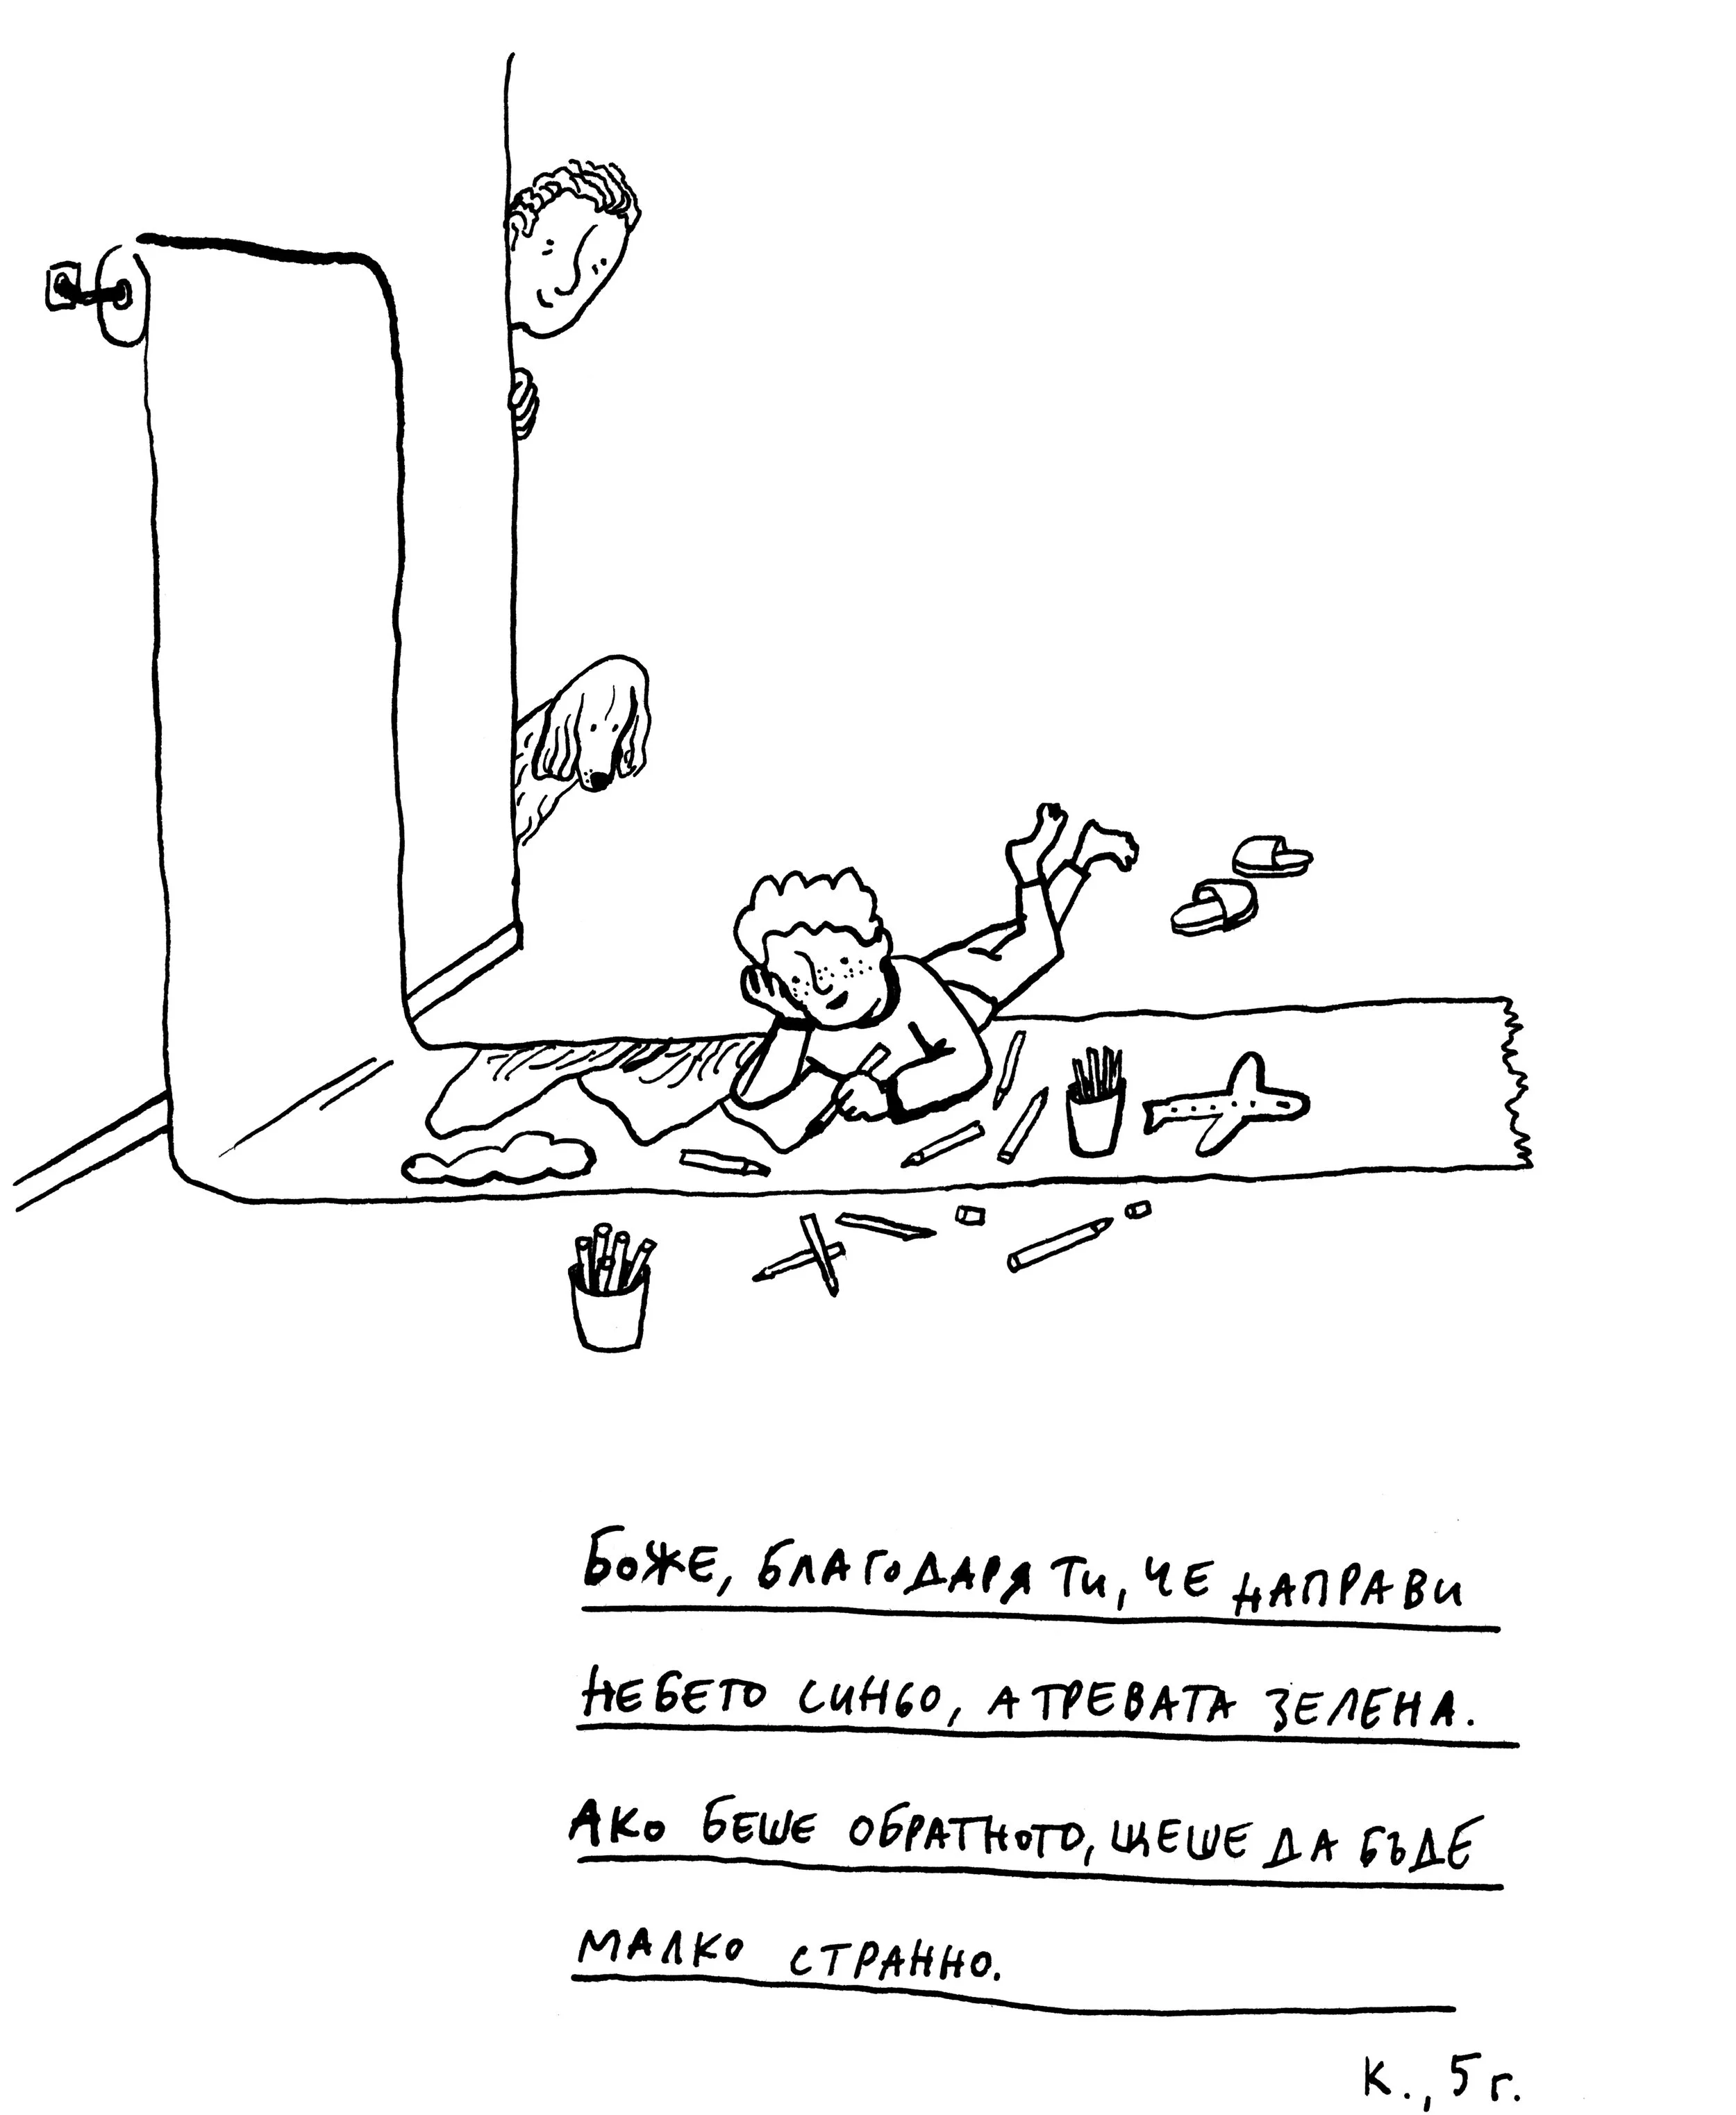 Боже, благодаря ти, че направи
небето синьо, а тревата зелена.
Ако беше обратното, щеше да бъде
малко странно.
К., 5 г.